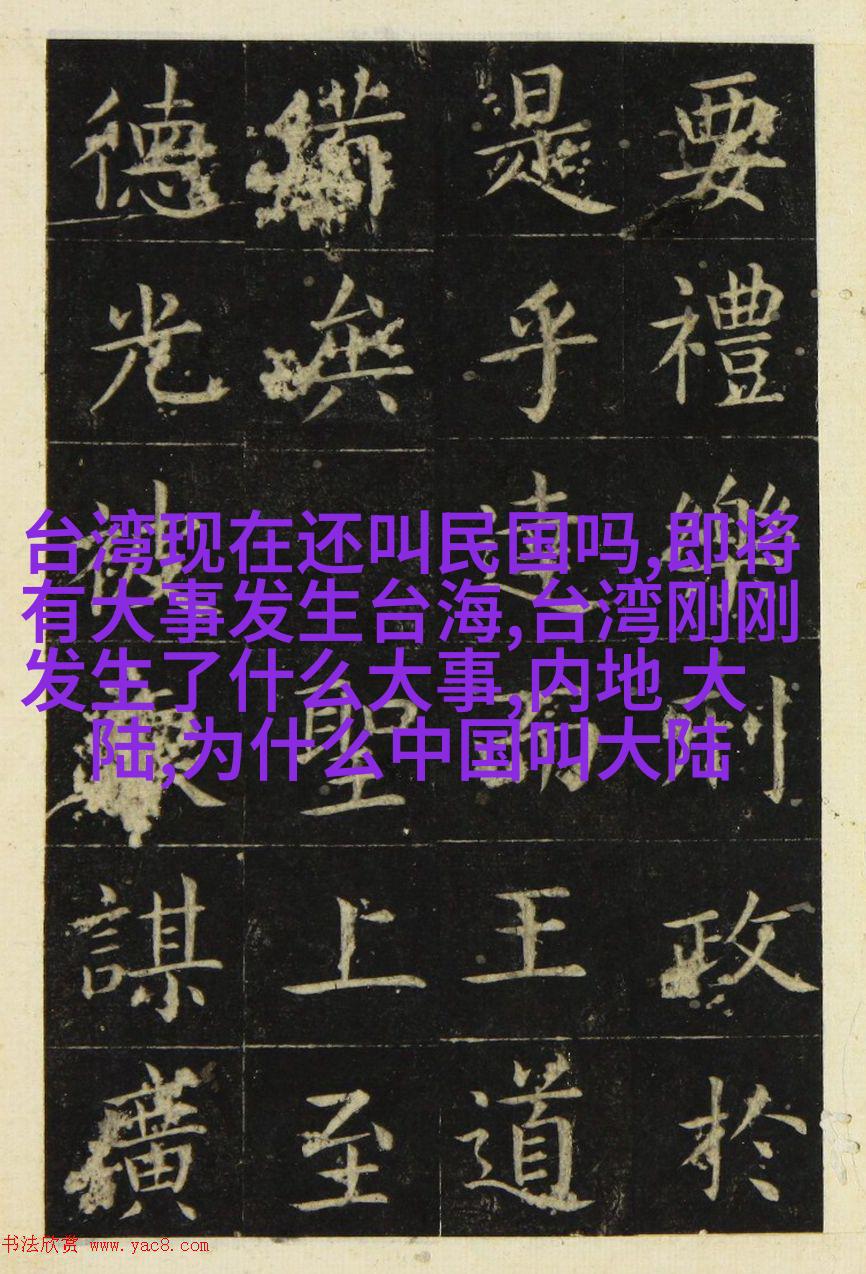 台湾现在还叫民国吗,即将
有大事发生台海,台湾刚刚
发生了什么大事,内地 大
陆,为什么中国叫大陆
要禮樂刑政於
是乎達王道
備無聖上至
德光被謀廣
书法欣赏 www.yac8.com